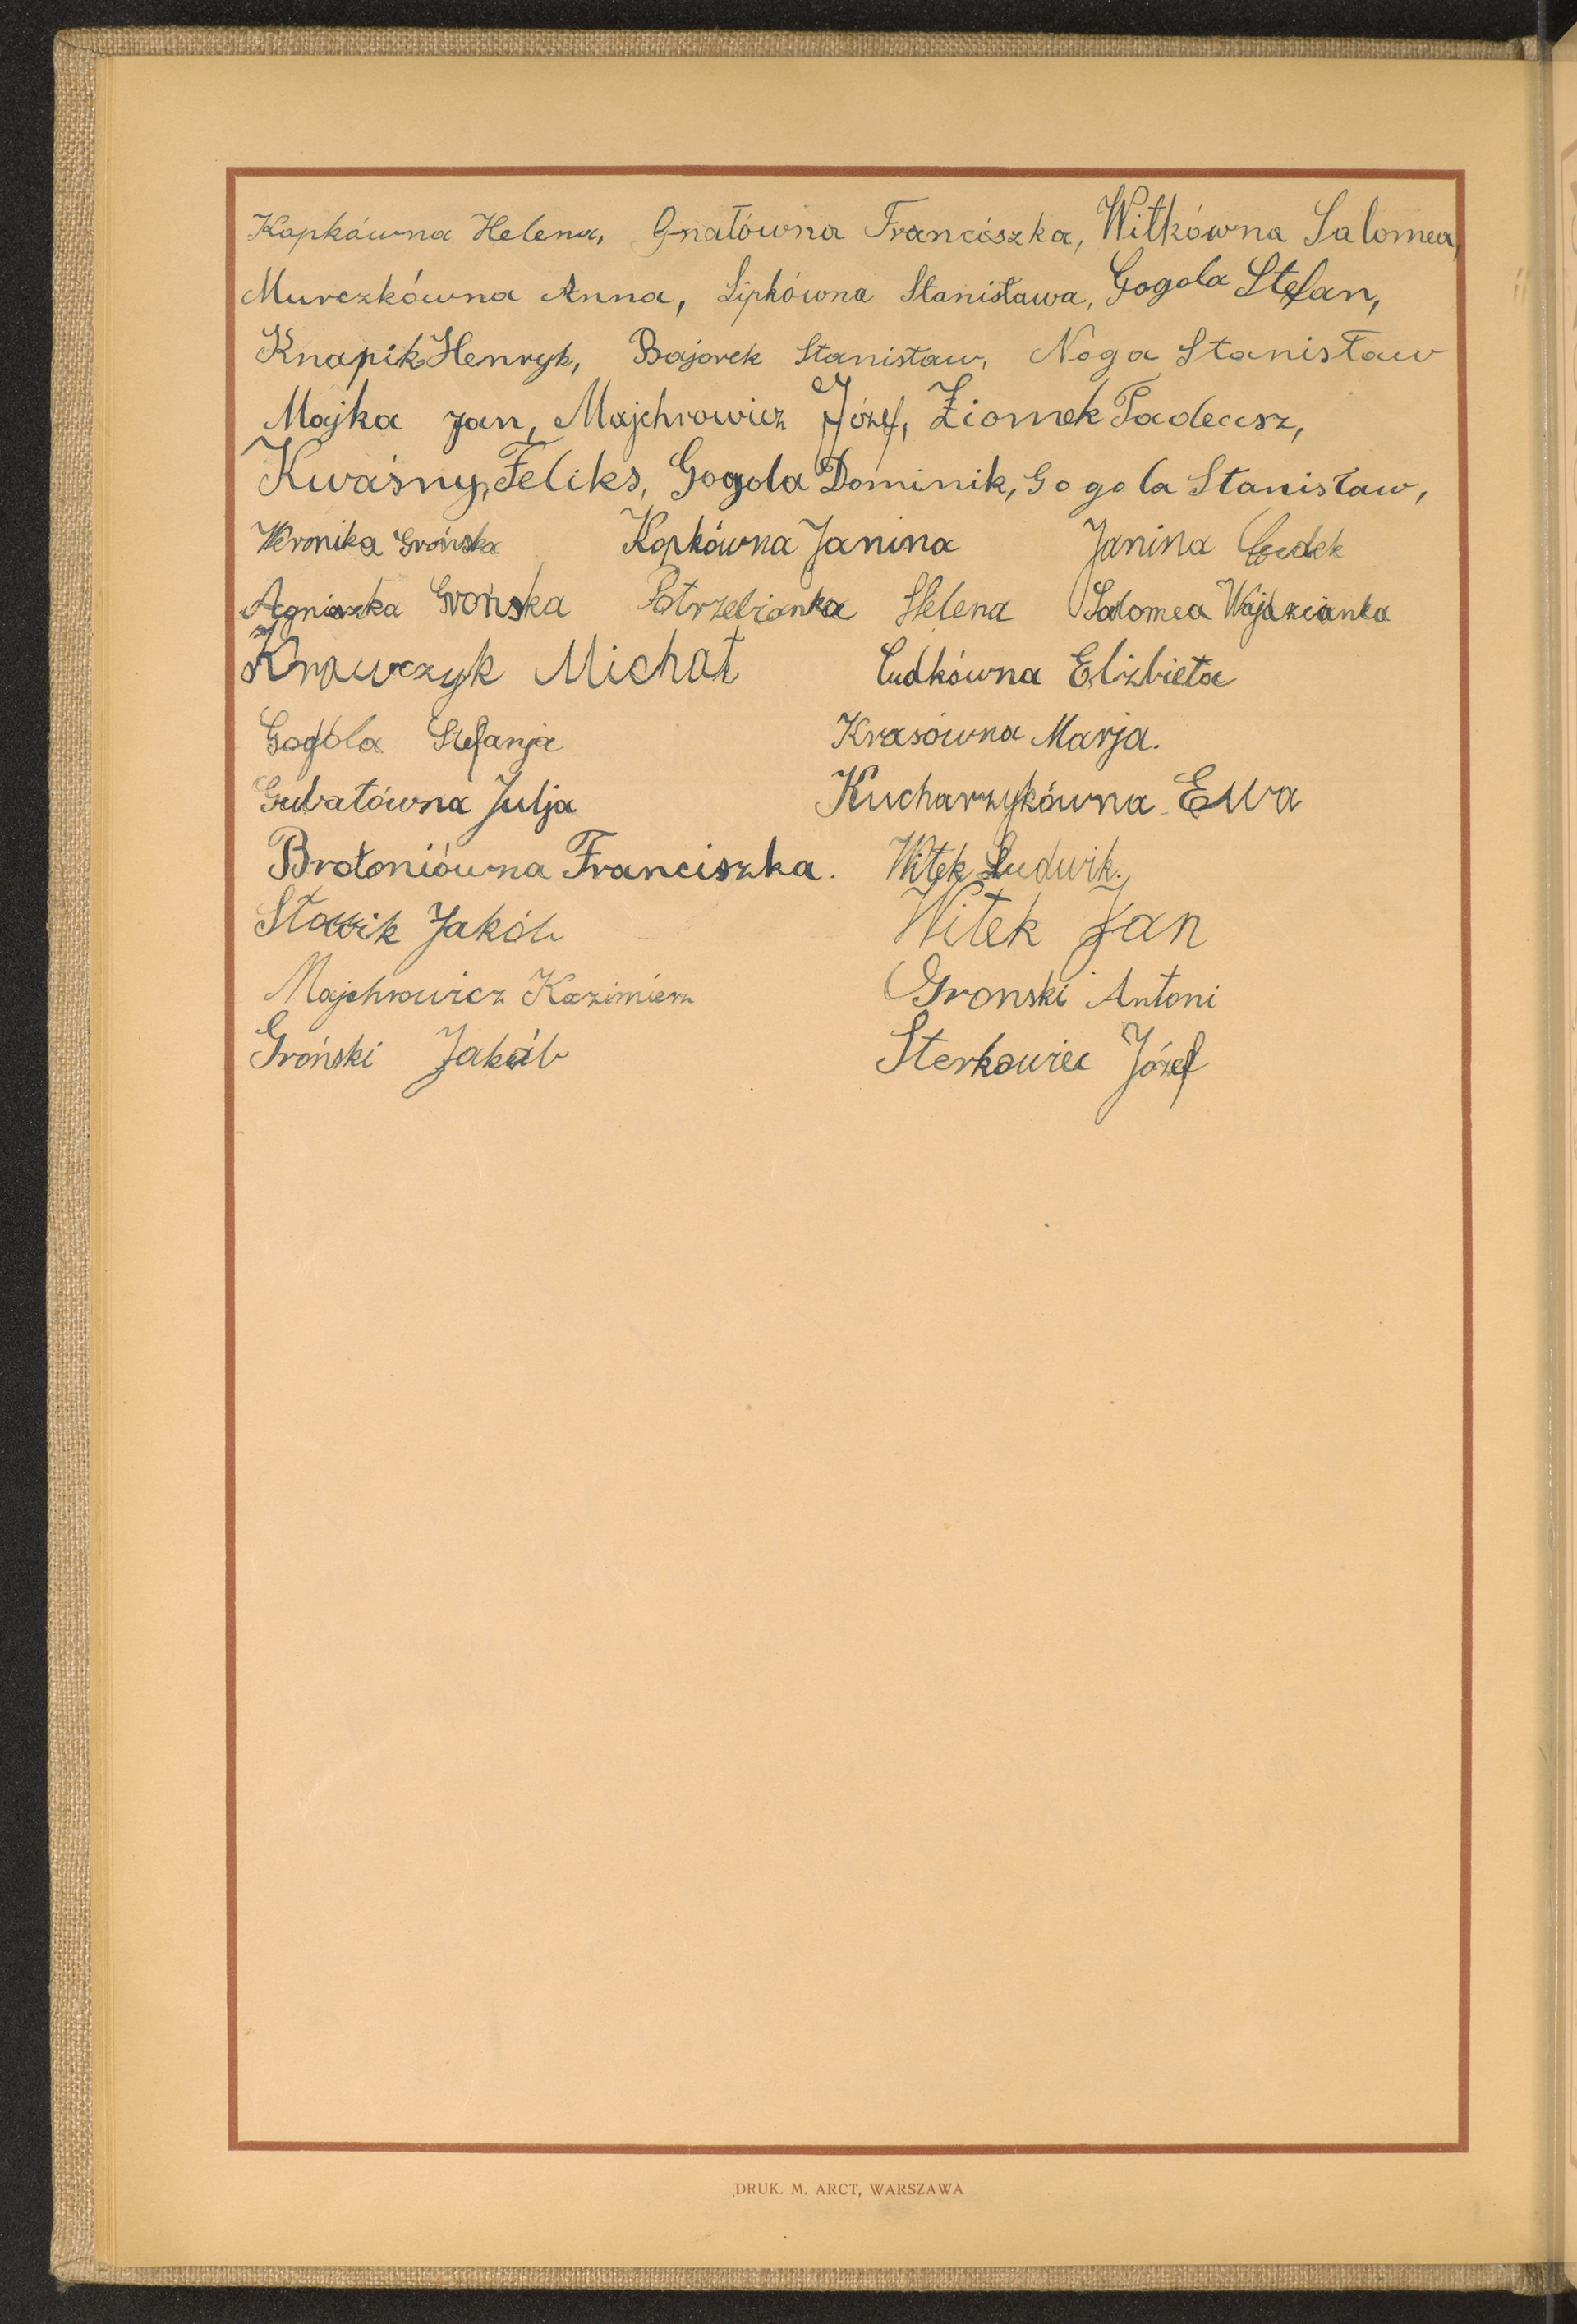 Kopkówna Helena, Gnatówna Franciszka, Witkówna Salomea,
Murczkówna Anna, Lipkówna Stanisława, Gogola Stefan,
Knapik Henryk, Bajorek Stanisław, Noga Stanisław
Majka Jan, Majchrowicz Józef, Ziomek Tadeusz,
Kwaśny Feliks, Gogola Dominik, Gogola Stanisław,
Weronika Grońska Kopkówna Janina Janina Cudek
Agnieszka Grońska Potrzebianka Helena Salomea Wajdzianka
Krawczyk Michał Cudkówna Elżbieta
Gogola Stefanja Krasówna Marja.
Gubałówna Julja Kucharzykówna Ewa
Brotoniówna Franciszka. Witek Ludwik.
Stawik Jakób Witek Jan
Majchrowicz Kazimierz Gronski Antoni
Groński Jakób Sterkowiec Józef
DRUK. M. ARCT, WARSZAWA